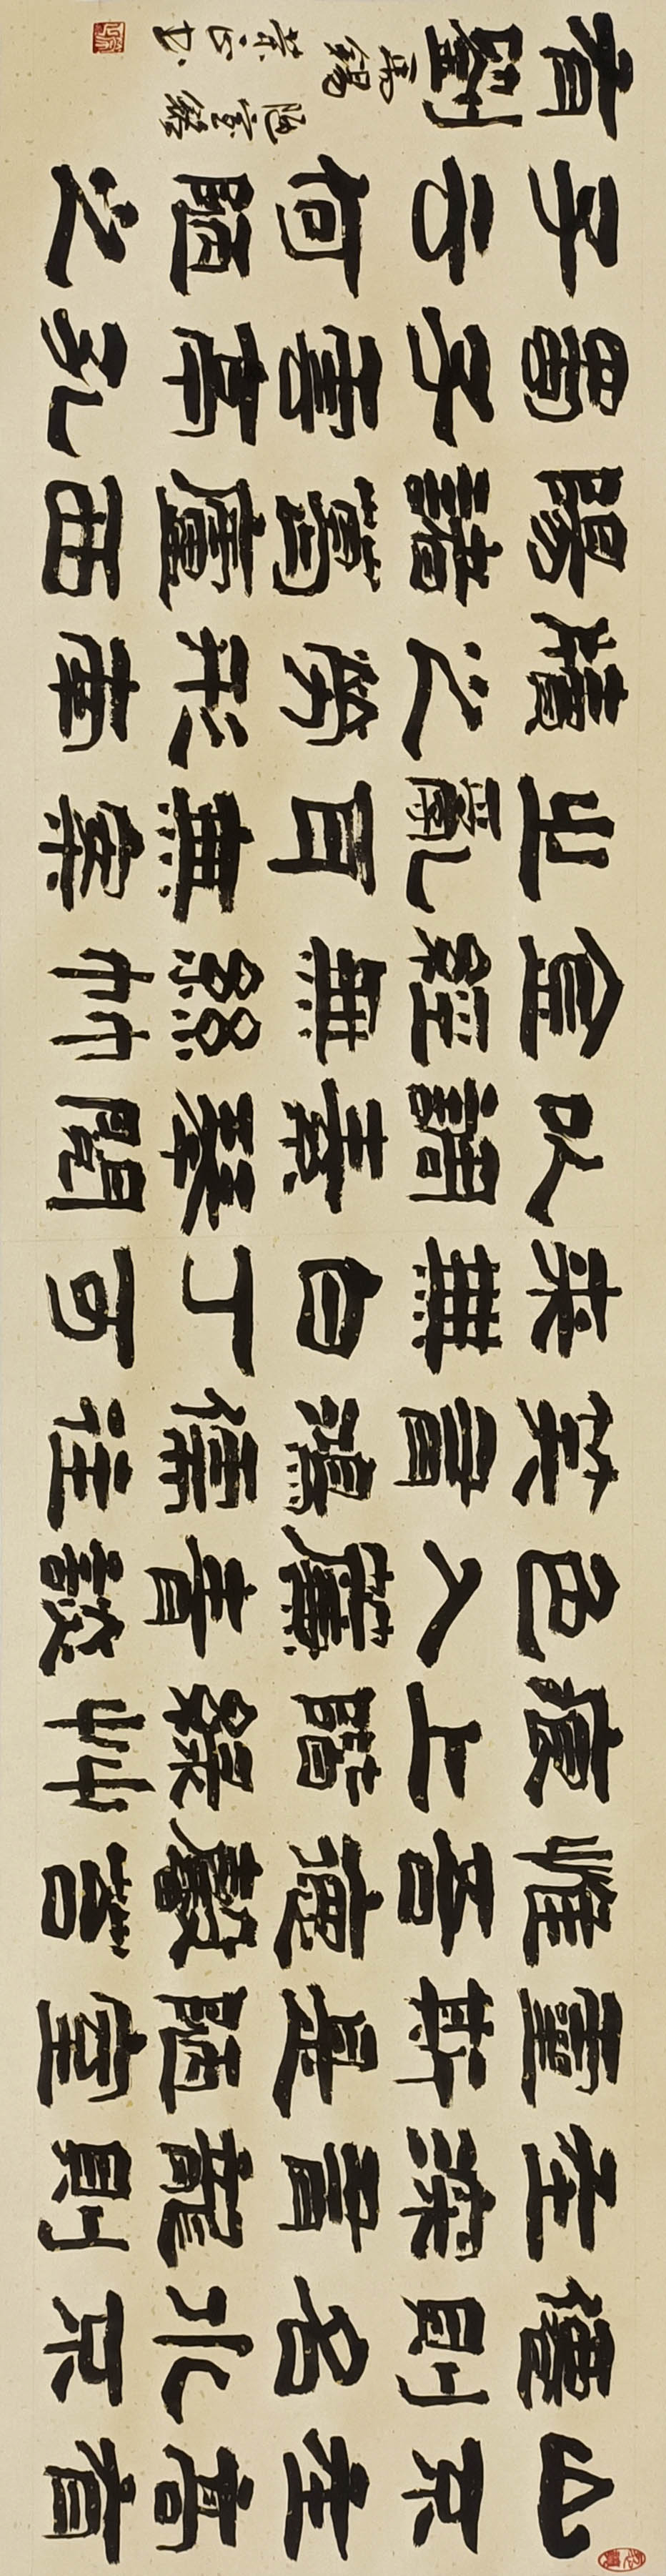 山不在高有
僊則名水不
在深有龍則
靈斯是陋室
惟吾德馨苔
痕上階綠艸
色入簾青談
笑有鴻儒往
來無白丁可
以調素琴閱
金經無絲竹
之亂耳無案
牘之勞形南
陽諸葛廬西
蜀子雲亭孔
子云何陋之
有劉禹錫
陋室銘